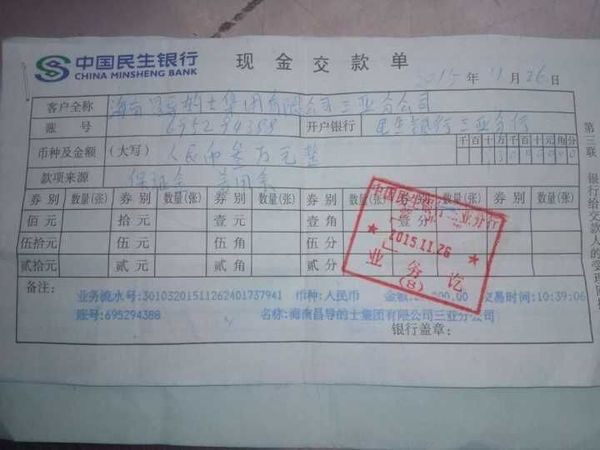 中国民生银行 现金交款单
CHINA MINSHENG BANK
2015年11月26日
客户全称 海南昌导的士集团有限公司三亚分公司
账号 695294388 开户银行 民生银行三亚分行
币种及金额 (大写) 人民币叁万元整 千百十万千百十元角分
款项来源 保证金
券别 数量(张) 券别 数量(张) 券别 数量(张) 券别 数量(张)
佰元 拾元 壹角 壹分
伍拾元 伍元 伍角 伍分
贰拾元 贰元 贰角 贰分
中国民生银行三亚分行
2015.11.26
业务讫
(8)
备注:
业务流水号:30103201511262401737941 币种:人民币 金额: 000.00 交易时间:10:39:06
账号:695294388 名称:海南昌导的士集团有限公司三亚分公司
银行盖章:
第三联 银行给交款人的受理回